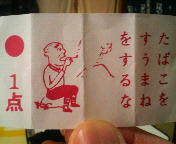 たばこを
すうまね
をするな
●1点